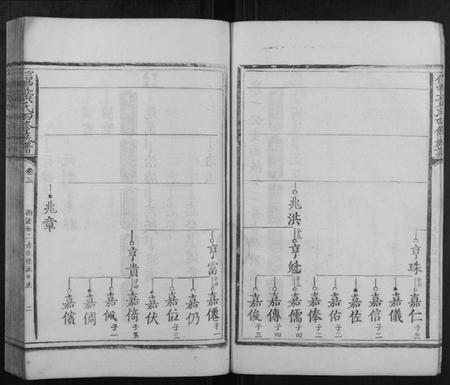 黃氏四修族譜
卷三
二
亨珠
嘉仁 子三
嘉儀
嘉信 子二
嘉佐
嘉佑 子二
嘉俸 子二
兆洪
亨魁
嘉儒 子四
嘉傳 子四
嘉俊 子五
亨富
嘉僊 子一
嘉仍
嘉位 子三
嘉伏
兆章
亨貴
嘉倚 子三
嘉佩 子一
嘉倜
嘉儐